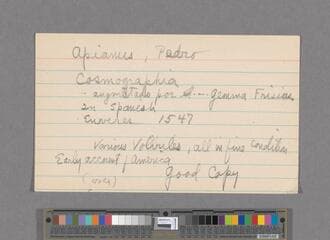 Apianus, Pedro
Cosmographia
- augmentado por Gemma Frisius
in Spanish
Enveres 1547
Various Volvules, all in fine condition
Early account / America
Good Copy
(over)